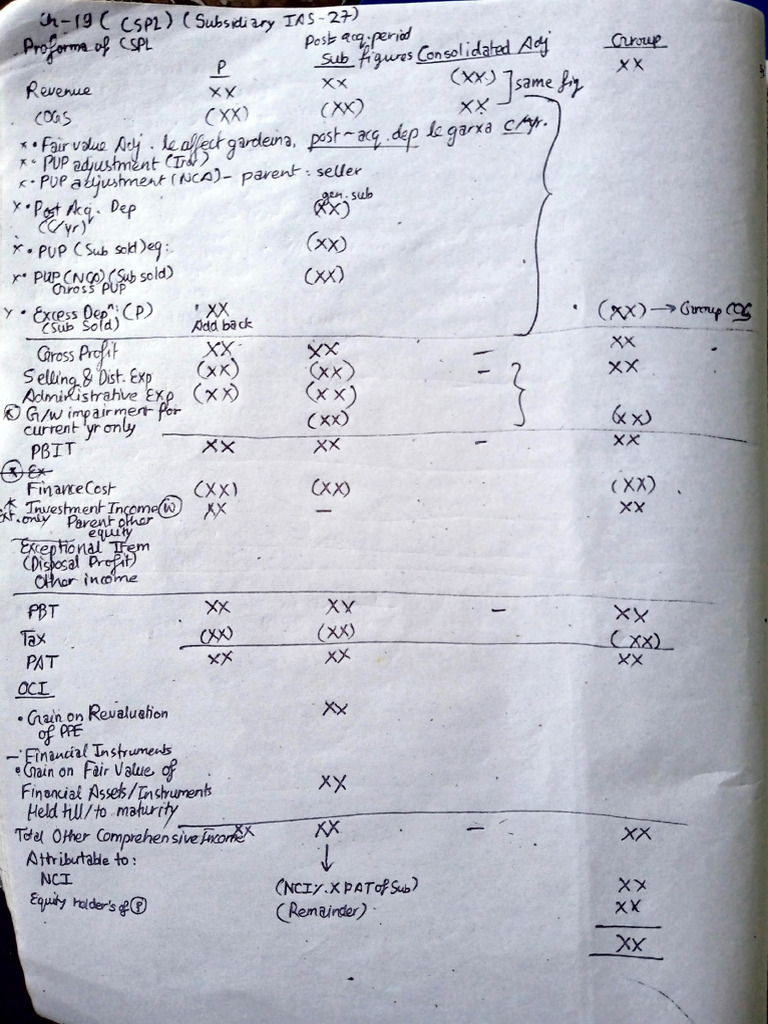 Ch-19 ( CSPL) (Subsidiary IAS-27)
Proforma of CSPL
Post acq. period
P Sub figures Consolidated Adj Group
Revenue XX XX (XX) XX
COGS (XX) (XX) XX same fig
x • Fair value Adj. le affect gardeina, post-acq. dep le garxa C/yr.
x • PUP adjustment
x • PUP adjustment (NCA) - parent : seller
x • Post Acq. Dep (XX) sub
(C/yr)
x • PUP (Sub sold) (XX)
x • PUP (Sub sold) (XX)
Gross PUP
• Excess Depⁿ: (P) XX • (XX) → Group COGS
(Sub Sold) Add back
Gross Profit XX XX - XX
Selling & Dist. Exp (XX) (XX) - XX
Administrative Exp (XX) (XX)
G/w impairment for (XX) (XX)
current yr only
PBIT XX XX - XX
Ex
Finance Cost (XX) (XX) (XX)
* Investment Income (W) XX - XX
only Parent other
equity
Exceptional Item
(Disposal Profit)
Other income
PBT XX XX - XX
Tax (XX) (XX) (XX)
PAT XX XX XX
OCI
• Gain on Revaluation XX
of PPE
- Financial Instruments
• Gain on Fair Value of
Financial Assets/Instruments XX
Held till/to maturity
Total Other Comprehensive Income XX XX - XX
Attributable to: ↓
NCI (NCI%.XPAT of Sub) XX
Equity holder's of (P) (Remainder) XX
XX